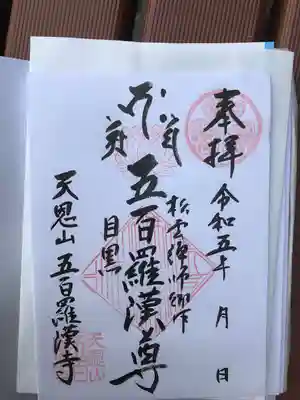 奉拝
令和五年 月 日
松雲禅師御下
五百羅漢尊
目黒
天恩山 五百羅漢寺